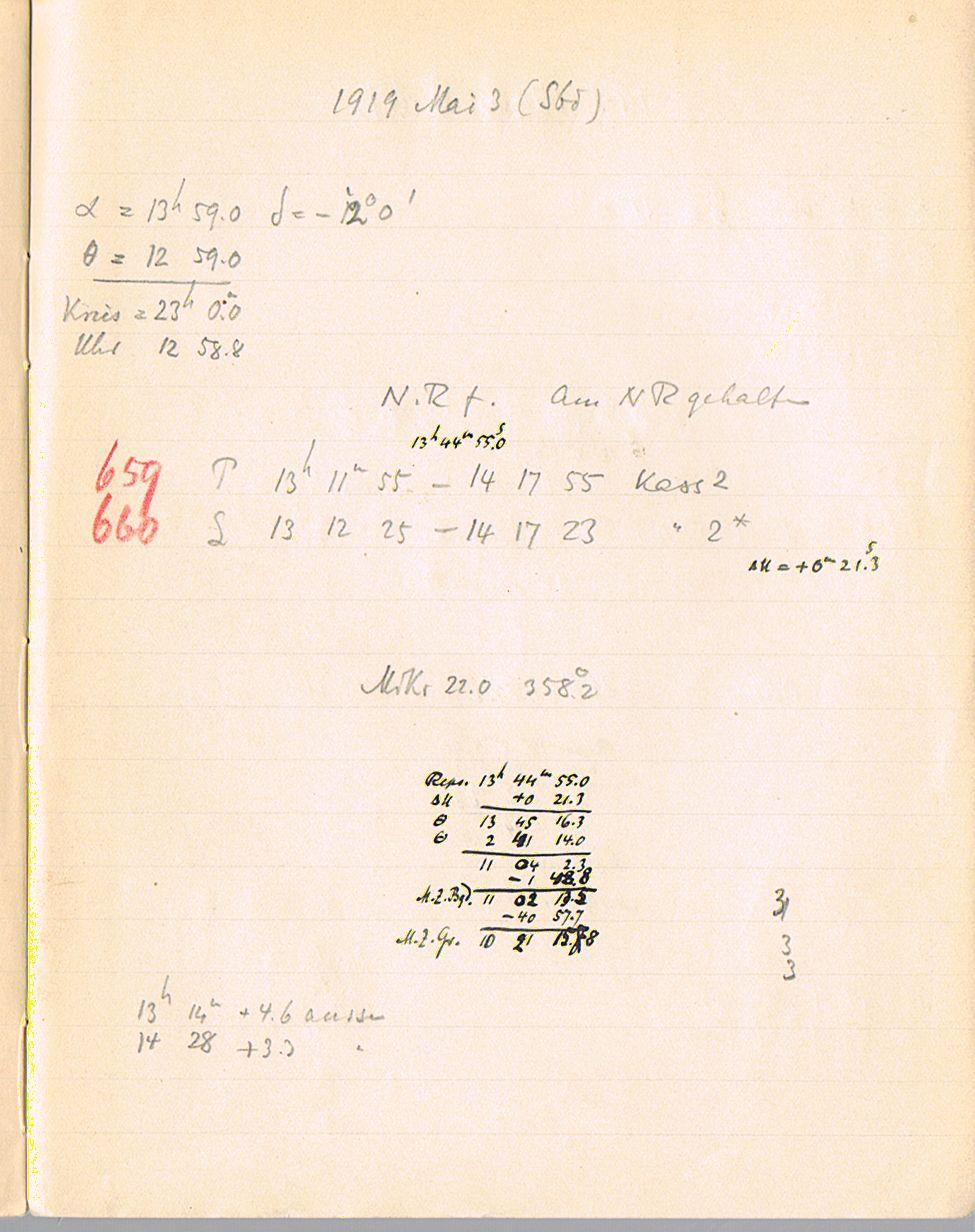 1919 Mai 3 (Sbd)
α = 13h 59.0 δ = -12° 0'
θ = 12 59.0
Kreis = 23h 0.0m
Uhr 12 58.8
N.R f. Am NR gehalten
13h 44m 55.0s
659 T 13h 11m 55 - 14 17 55 Kass 2
660 L 13 12 25 - 14 17 23 " 2*
ΔU = +0m 21.3s
Mikr 22.0 358.2°
Reps. 13h 44m 55.0
ΔU +0 21.3
θ 13 45 16.3
θ 2 41 14.0
11 04 2.3
-1 48.8
M.Z.Bgd. 11 02 13.5
-40 57.7
M.Z.Gr. 10 21 15.8
3
3
3
13h 14m +4.6 aussen
14 28 +3.3 "